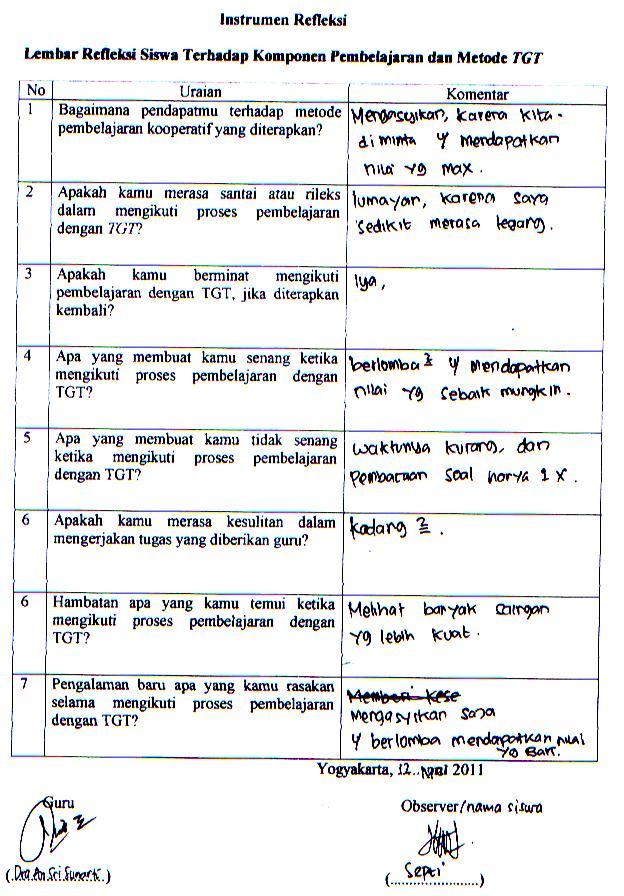 Instrumen Refleksi
Lembar Refleksi Siswa Terhadap Komponen Pembelajaran dan Metode TGT
No Uraian Komentar
1 Bagaimana pendapatmu terhadap metode
pembelajaran kooperatif yang diterapkan?
Mengasyikan, karena kita -
di minta y mendapatkan
nilai yg max.
2 Apakah kamu merasa santai atau rileks
dalam mengikuti proses pembelajaran
dengan TGT?
lumayan, karena saya
sedikit merasa tegang.
3 Apakah kamu berminat mengikuti
pembelajaran dengan TGT, jika diterapkan
kembali?
Iya,
4 Apa yang membuat kamu senang ketika
mengikuti proses pembelajaran dengan
TGT?
berlomba2 y mendapatkan
nilai yg sebaik mungkin.
5 Apa yang membuat kamu tidak senang
ketika mengikuti proses pembelajaran
dengan TGT?
waktunya kurang, dan
Pembacaan soal hanya 1 x.
6 Apakah kamu merasa kesulitan dalam
mengerjakan tugas yang diberikan guru?
kadang 2.
6 Hambatan apa yang kamu temui ketika
mengikuti proses pembelajaran dengan
TGT?
Melihat banyak saingan
yg lebih kuat.
7 Pengalaman baru apa yang kamu rasakan
selama mengikuti proses pembelajaran
dengan TGT?
Memberi kese
Mengasyikan saya
y berlomba mendapatkan nilai
yg Baik.
Yogyakarta, 12 April 2011
Guru
Observer/nama siswa
(Dra. Sri Sunarti)
(Septi)